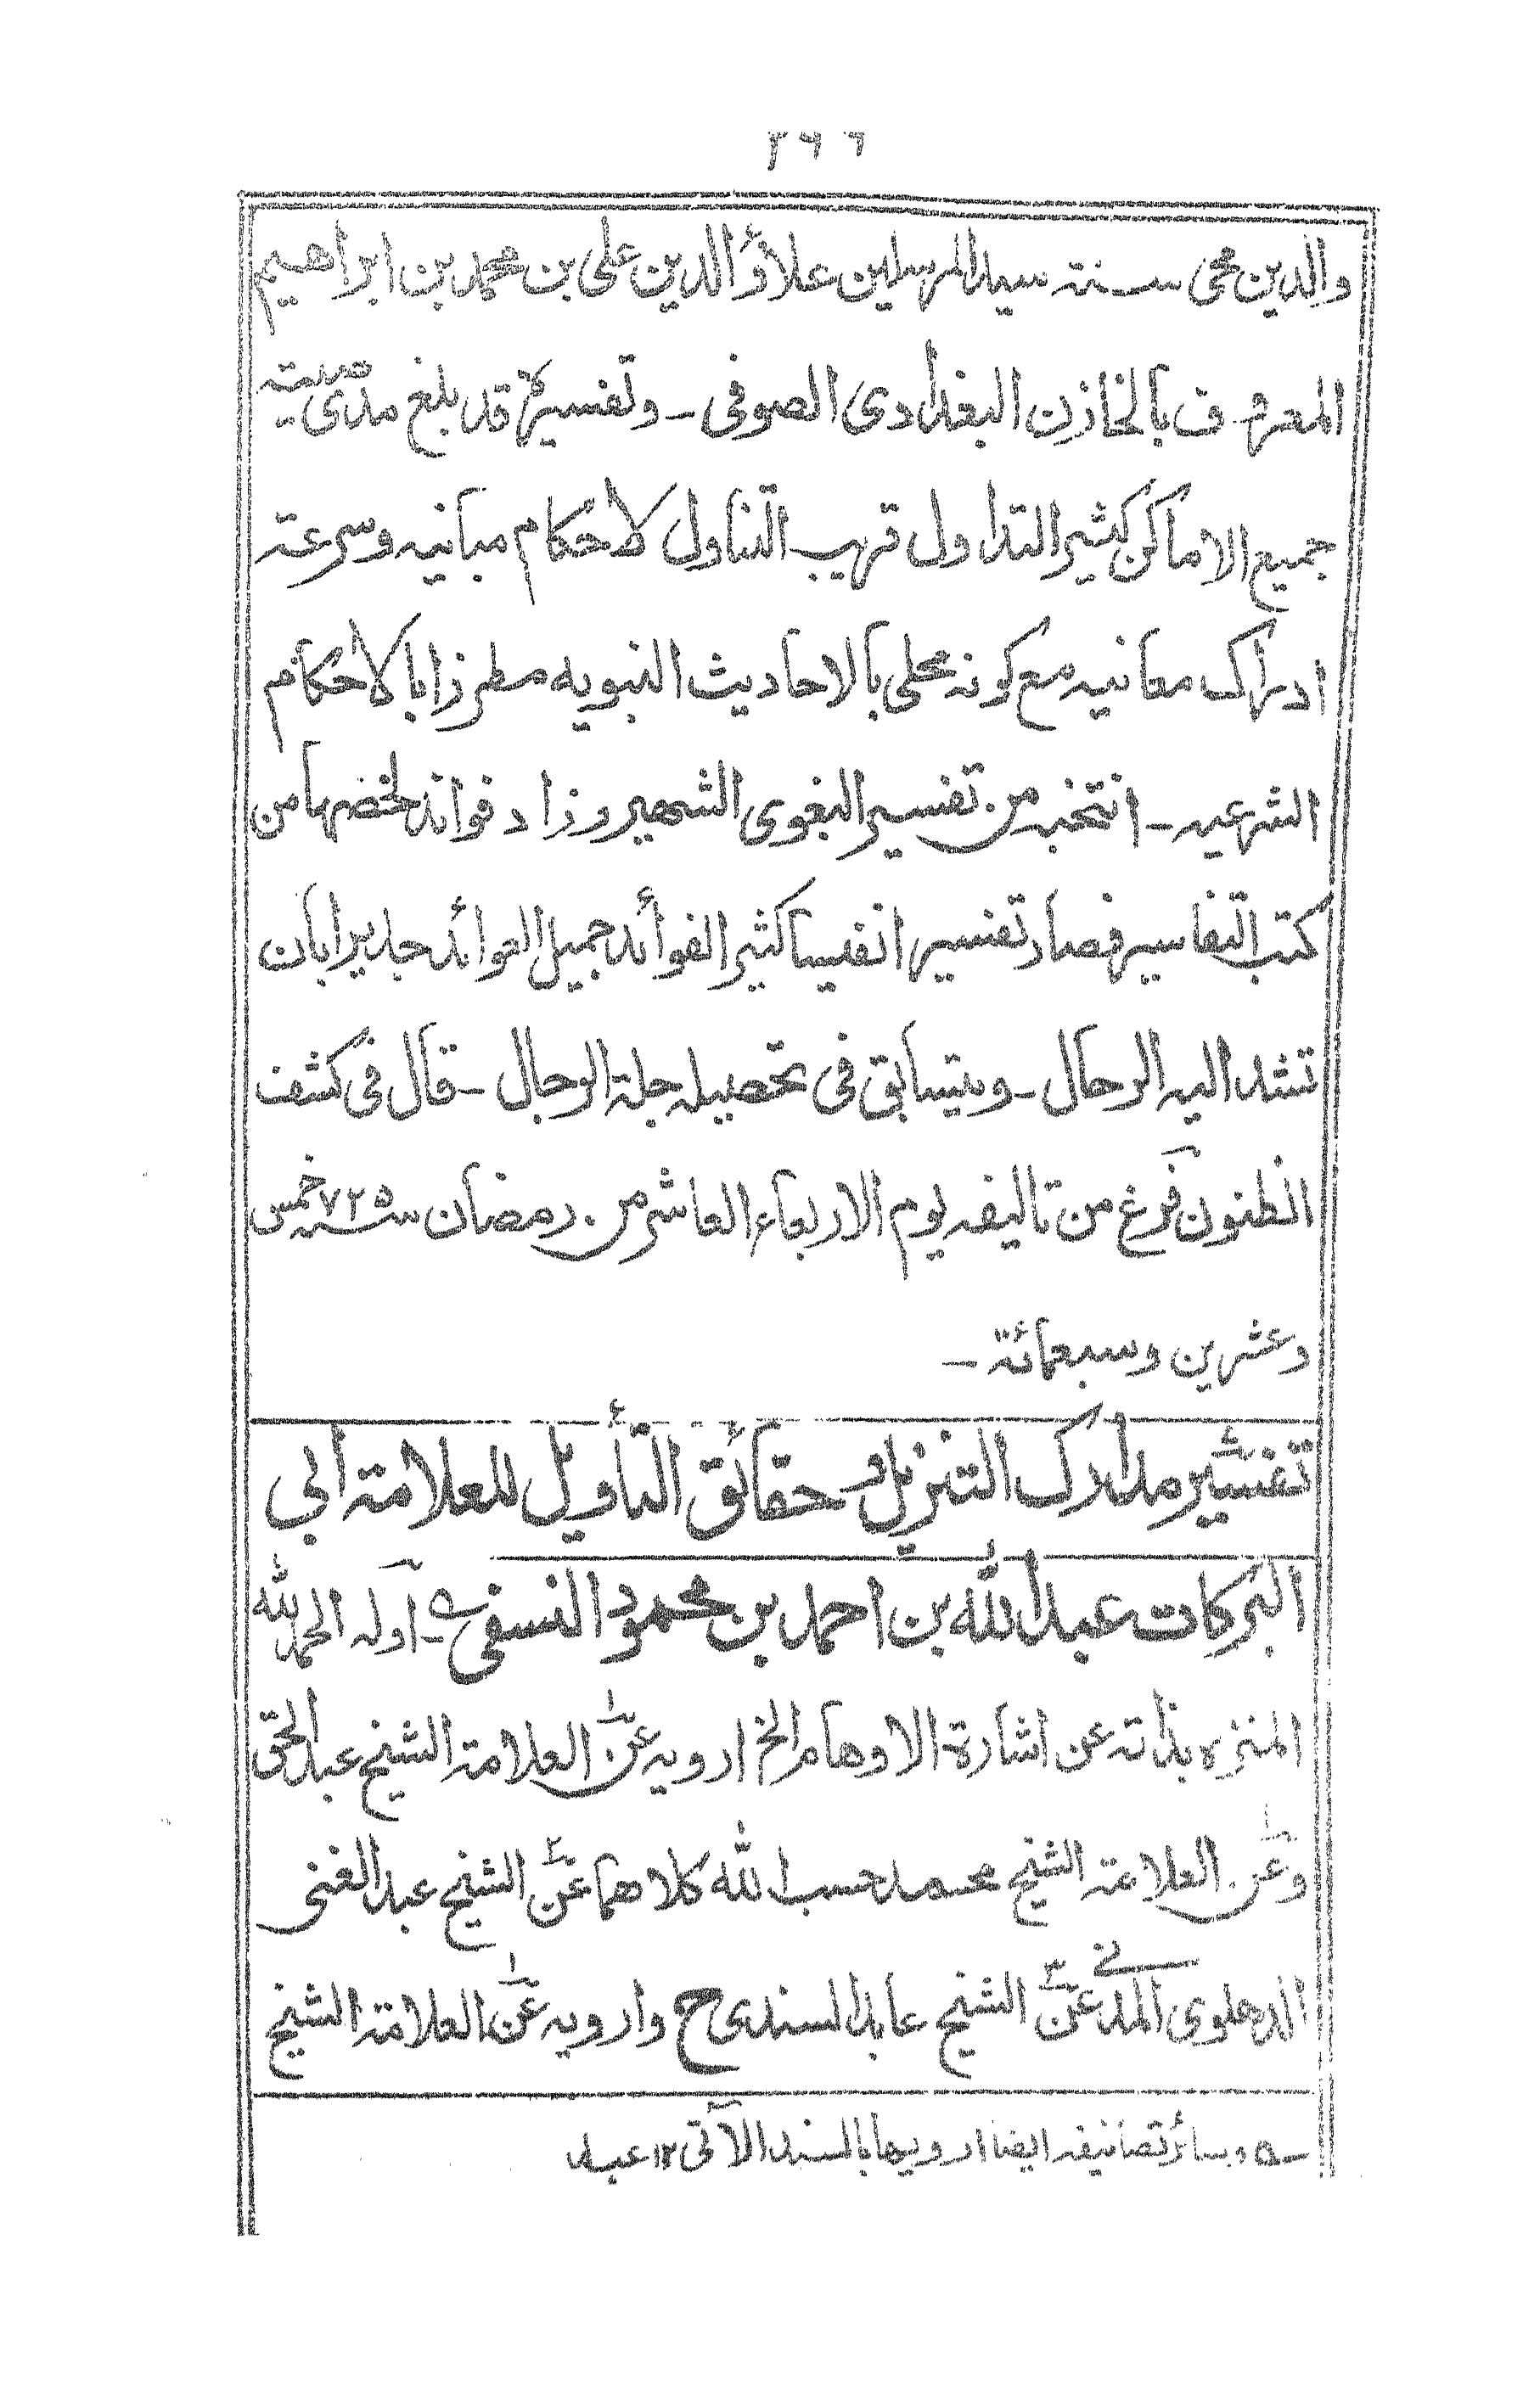 ٢٦٦
والدين محى سنة سيد المرسلين علاؤ الدين على بن محمد بن ابراهيم
المعروف بالخازن البغدادى الصوفى ـ وتفسيره قد بلغ مدى صيته
جميع الاماكن كثير التداول قريب التناول لاحكام مبانيه وسرعة
ادراك معانيه مع كونه محلى بالاحاديث النبويه مطرزا بالاحكام
الشرعيه ـ انتخبه من تفسير البغوى الشهير وزاد فوائد لخصها من
كتب التفاسير فصار تفسيرا نفيسا كثير الفوائد جميل العوائد جديرا بان
تشد اليه الرحال ـ ويتسابق فى تحصيله جلة الرجال ـ قال فى كشف
الظنون فرغ من تاليفه يوم الاربعاء العاشر من رمضان سنه ٧٢٥ خمس
وعشرين وسبعمائة ـ
تفسير مدارك التنزيل و حقائق التأويل للعلامة ابى
البركات عبد الله بن احمد بن محمود النسفى ـ اوله الحمد لله
المنزه بذاته عن اشارة الاوهام الخ ارويه عن العلامة الشيخ عبد الحق
وعن العلامة الشيخ محمد حسب الله كلاهما عن الشيخ عبد الغنى
الدهلوى المدنى عن الشيخ عابد السندى ح وارويه عن العلامة الشيخ
ـه وسائر تصانيفه ايضا ارويها بالسند الآتى ١٢ عبد